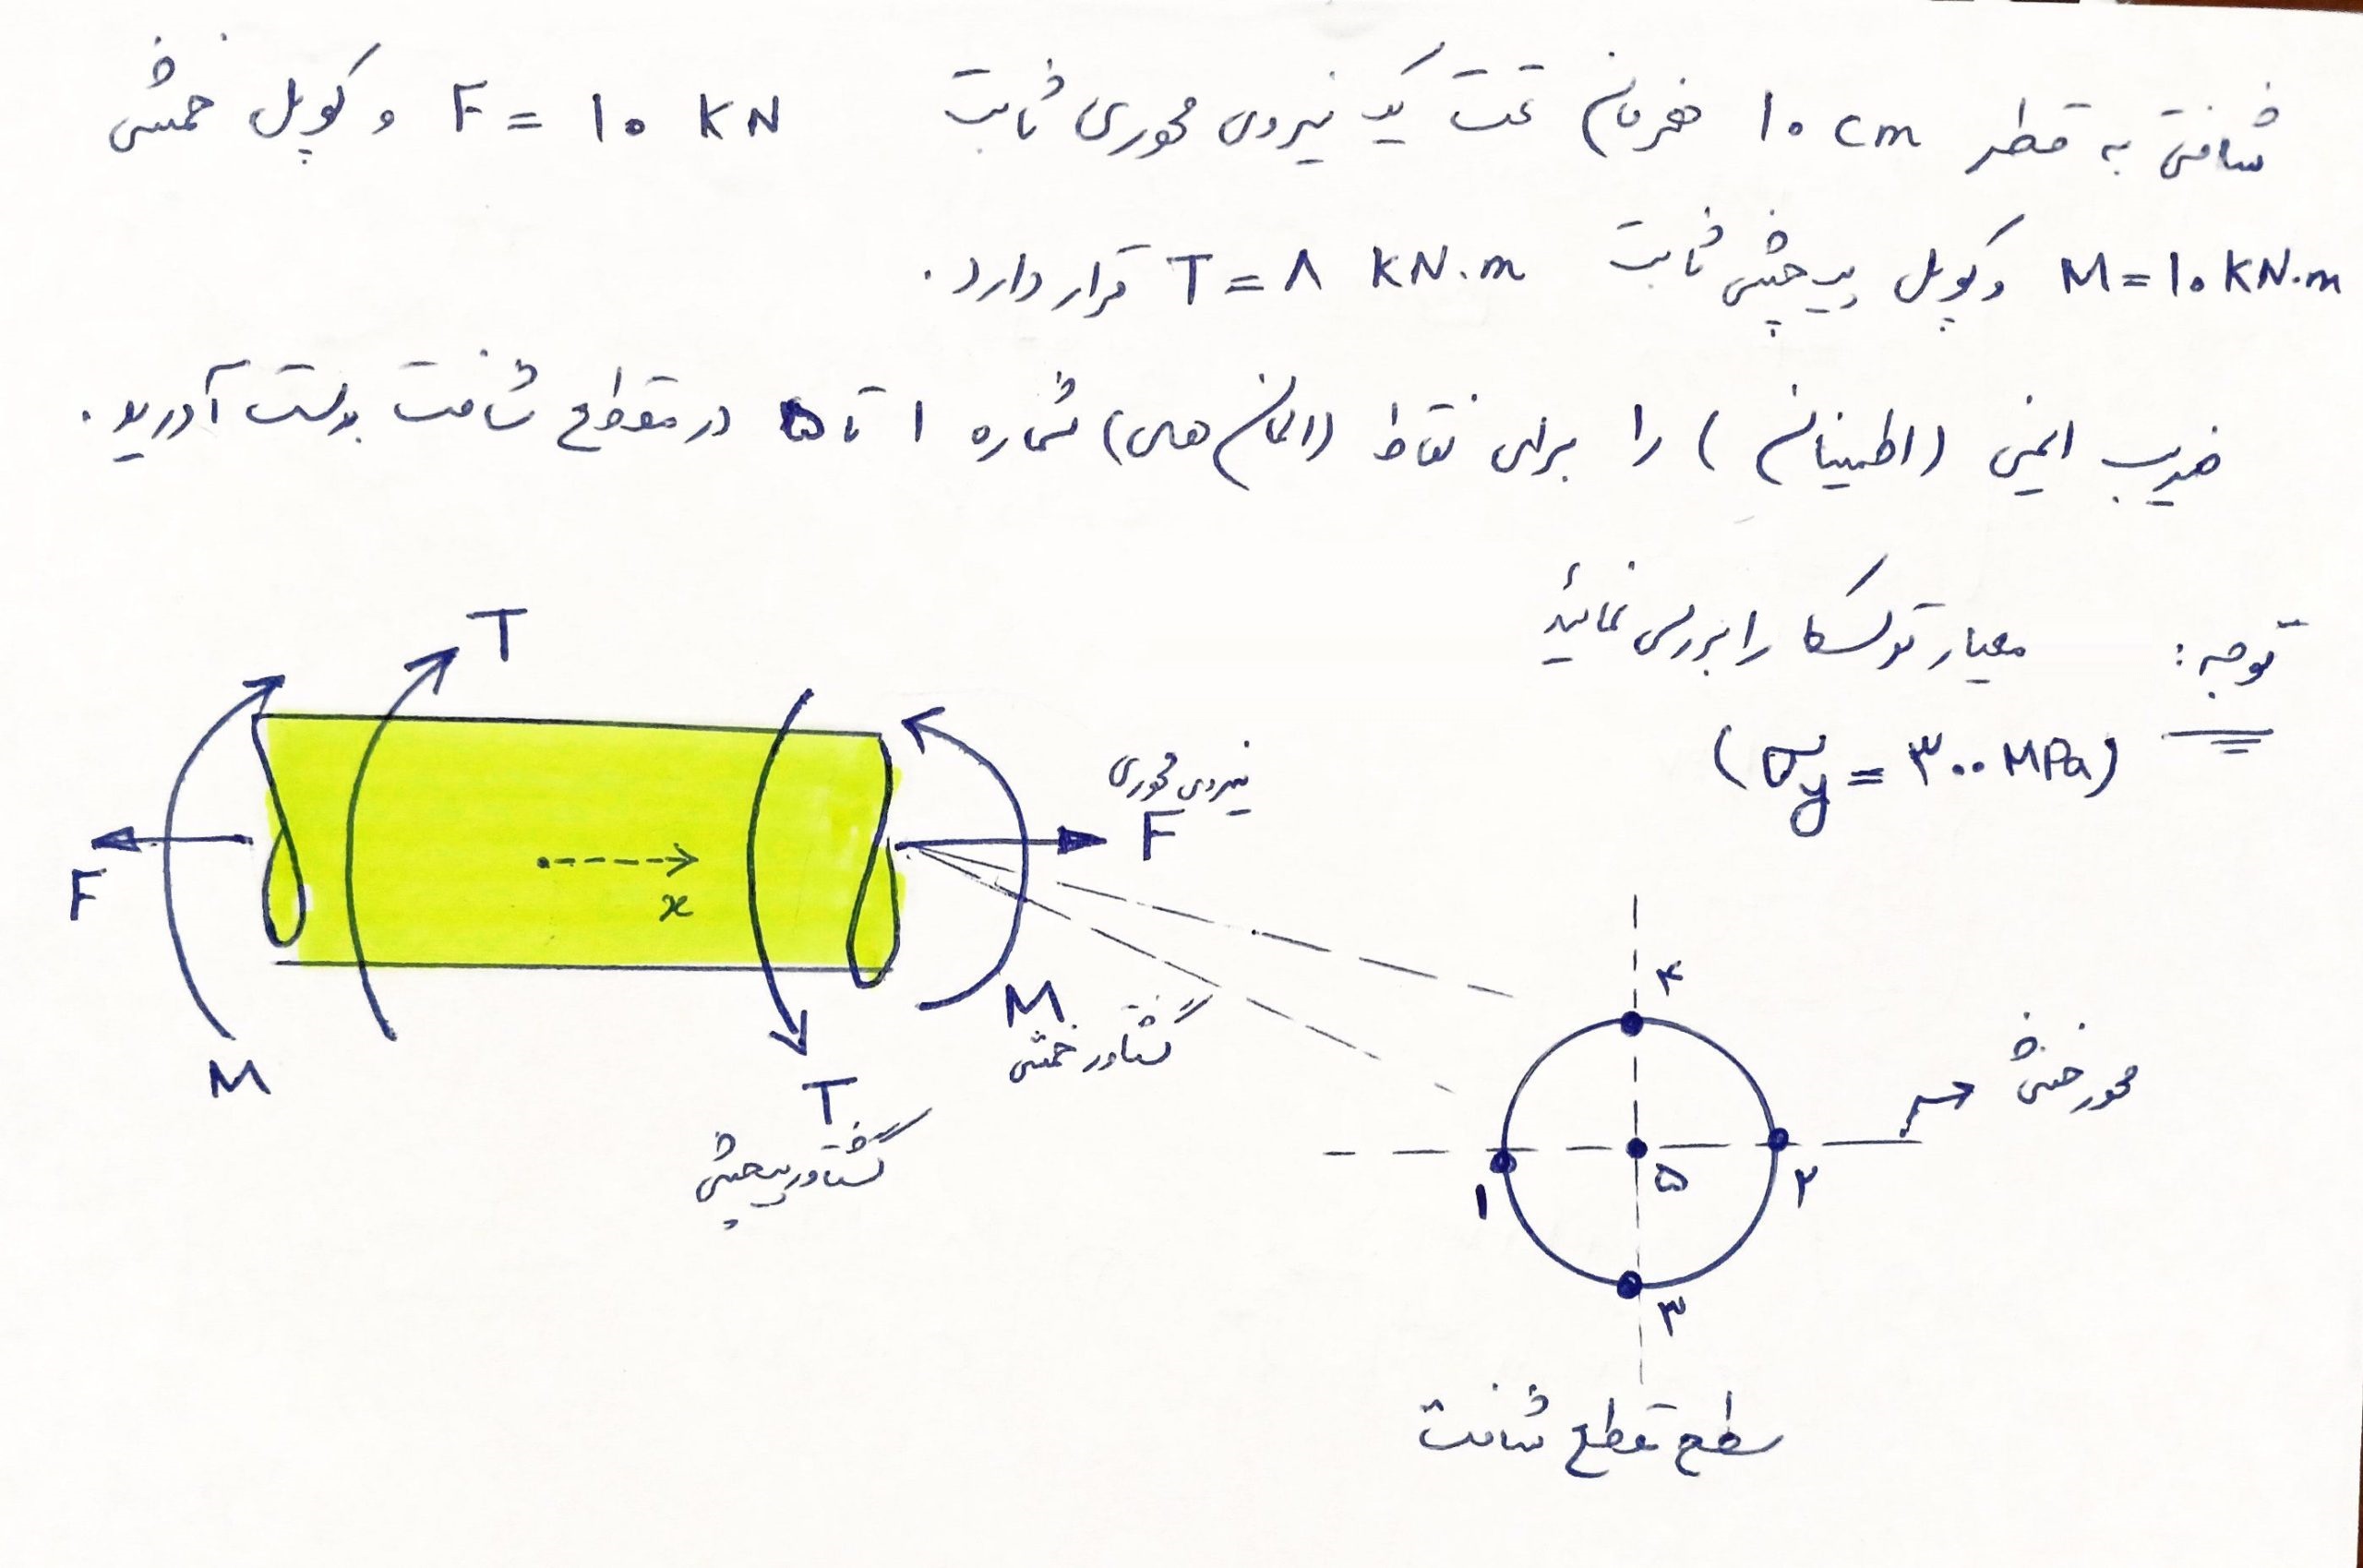 شافتی به قطر ۱۰ cm همزمان تحت یک نیروی محوری ثابت F = ۱۰ KN و کوپل خمشی
M = ۱۰ KN.m و کوپل پیچشی ثابت T = ۸ KN.m قرار دارد.
ضریب ایمنی (اطمینان) را برای نقاط (المان های) شماره ۱ تا ۵ در مقطع شافت بدست آورید.
توجه: معیار ترسکا را بررسی نمائید
(σy = ۳۰۰ MPa)
T
نیروی محوری
F
F
x
M
گشتاور خمشی
M
T
گشتاور پیچشی
۴
محور خنثی
۱
۵
۲
۳
سطح مقطع شافت